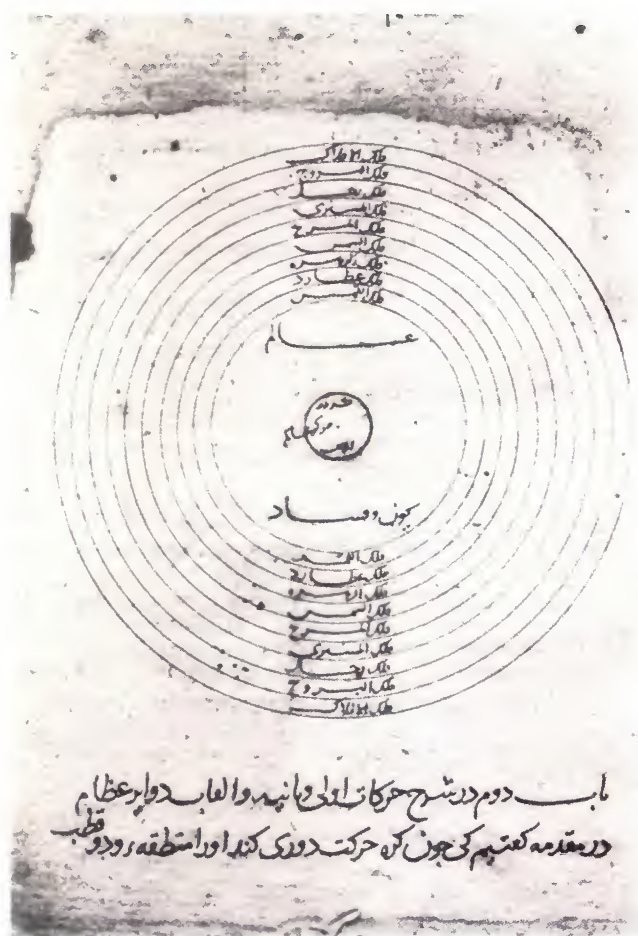 فلك الافلاك
فلك البروج
فلك زحل
فلك المشتری
فلك المریخ
فلك الشمس
فلك الزهره
فلك عطارد
فلك القمر
عالم
مرکز عالم
کون و فساد
فلك القمر
فلك عطارد
فلك الزهره
فلك الشمس
فلك المریخ
فلك المشتری
فلك زحل
فلك البروج
فلك الافلاك
باب دوم در شرح حرکات اولی و ثانیه و القاب دوایر عظام
در مقدمه کفتیم کی جون کره حرکت دوری کند اورا منطقه بود و دو قطب